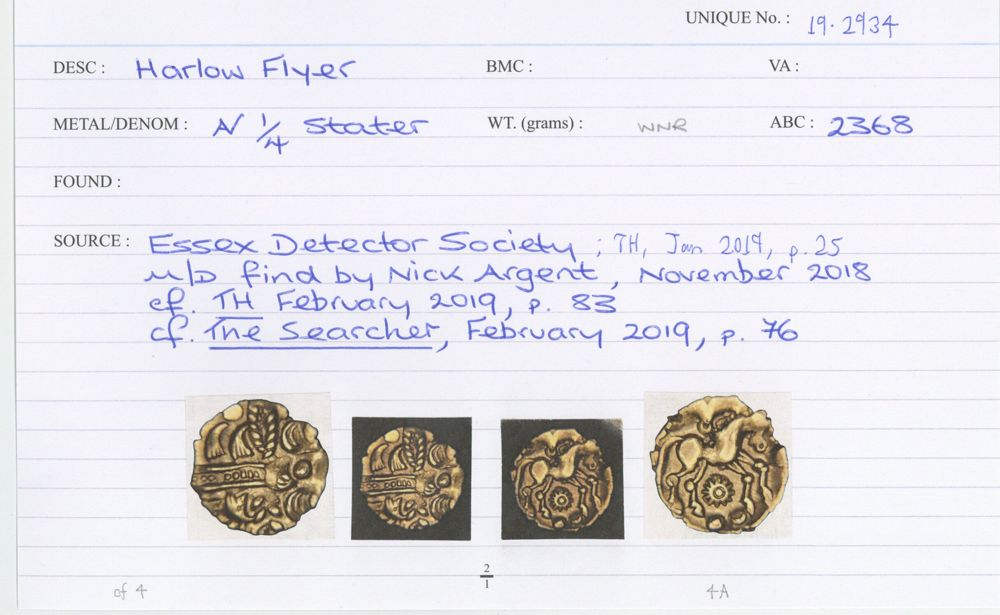 UNIQUE No. : 19.2934
DESC : Harlow Flyer BMC : VA :
METAL/DENOM : N 1/4 stater WT. (grams) : WNR ABC : 2368
FOUND :
SOURCE : Essex Detector Society ; TH, Jan 2019, p. 25
m/D find by Nick Argent, November 2018
cf. TH February 2019, p. 83
cf. The Searcher, February 2019, p. 76
2
1
of 4 4A